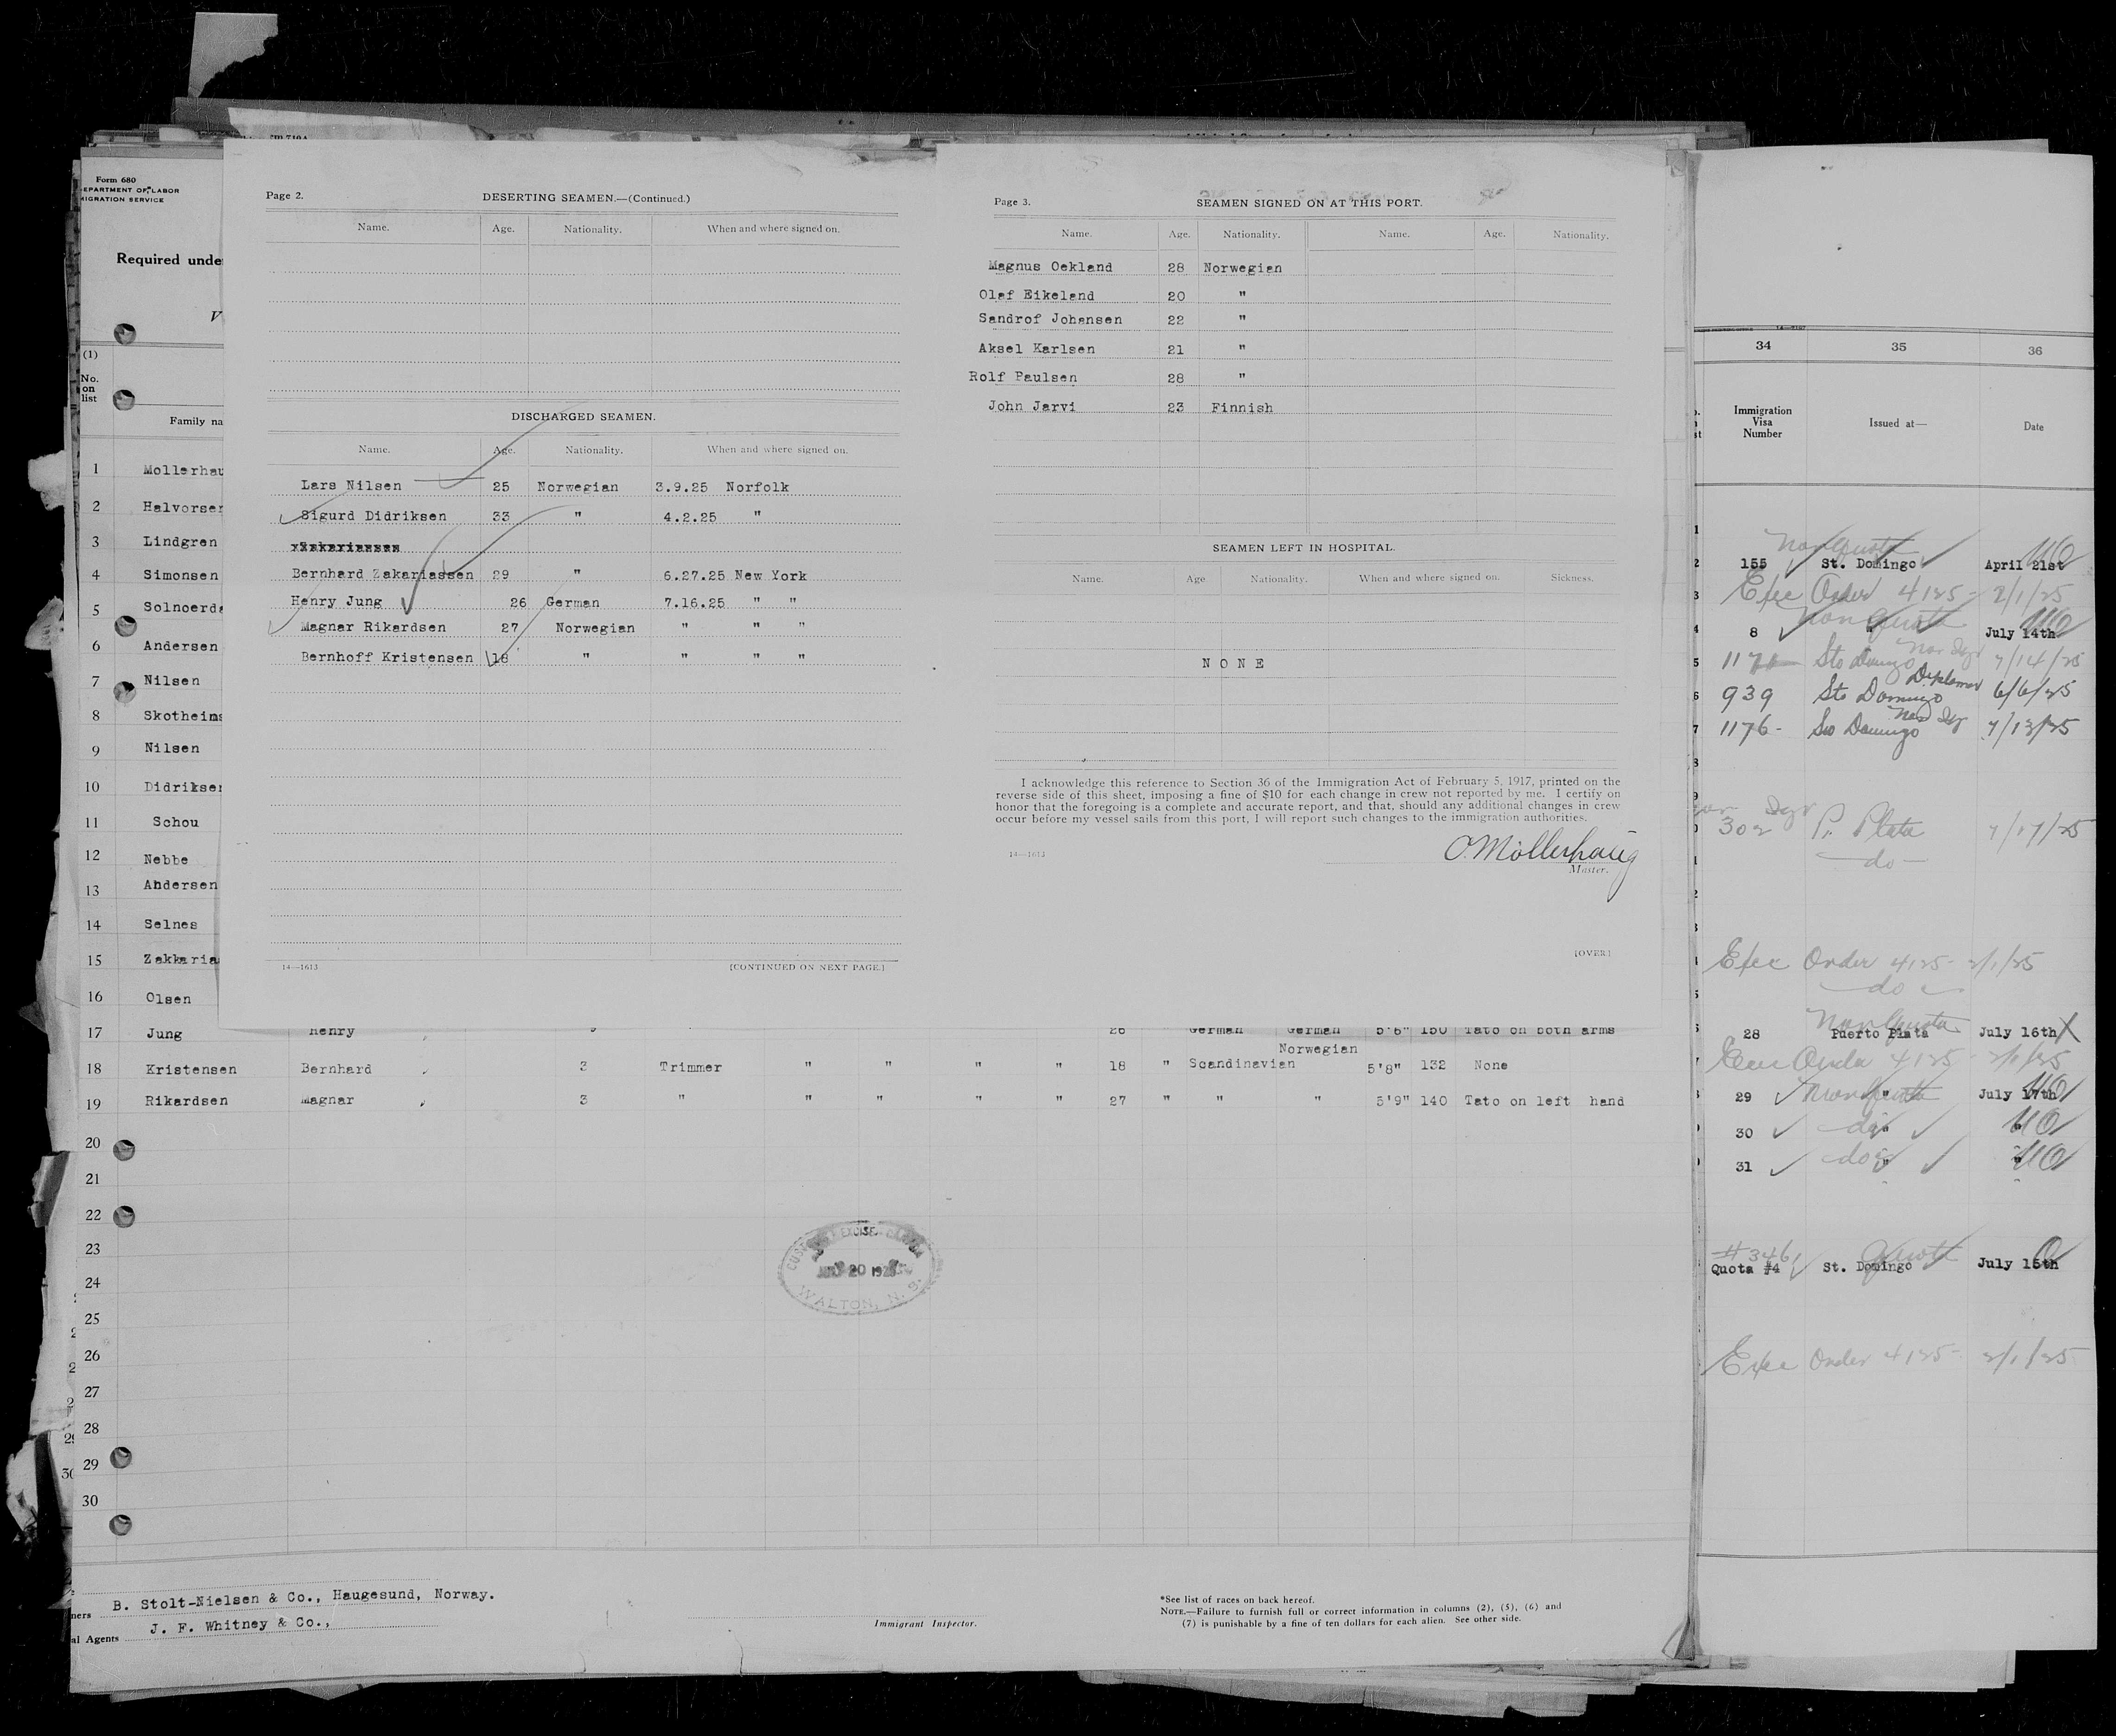 Form 680
EPARTMENT OF LABOR
IGRATION SERVICE
Required unde
V
(1)
No.
on
list
Family na
1 Mollerhau
2 Halvorsen
3 Lindgren
4 Simonsen
5 Solnoerda
6 Andersen
7 Nilsen
8 Skotheims
9 Nilsen
10 Didriksen
11 Schou
12 Nebbe
13 Andersen
14 Selnes
15 Zakkarias
16 Olsen
Page 2.
DESERTING SEAMEN.—(Continued.)
Name. Age. Nationality. When and where signed on.
DISCHARGED SEAMEN.
Name. Age. Nationality. When and where signed on.
Lars Nilsen 25 Norwegian 3.9.25 Norfolk
Sigurd Didriksen 33 " 4.2.25 "
Bernhard Zakariassen 29 " 6.27.25 New York
Henry Jung 26 German 7.16.25 " "
Magnar Rikardsen 27 Norwegian " " "
Bernhoff Kristensen 18 " " " "
14—1613
[CONTINUED ON NEXT PAGE.]
Page 3.
SEAMEN SIGNED ON AT THIS PORT.
Name. Age. Nationality. Name. Age. Nationality.
Magnus Oekland 28 Norwegian
Olaf Eikeland 20 "
Sandrof Johansen 22 "
Aksel Karlsen 21 "
Rolf Paulsen 28 "
John Jarvi 23 Finnish
SEAMEN LEFT IN HOSPITAL.
Name. Age Nationality. When and where signed on. Sickness.
NONE
I acknowledge this reference to Section 36 of the Immigration Act of February 5, 1917, printed on the
reverse side of this sheet, imposing a fine of $10 for each change in crew not reported by me. I certify on
honor that the foregoing is a complete and accurate report, and that, should any additional changes in crew
occur before my vessel sails from this port, I will report such changes to the immigration authorities.
14—1613
O. Möllerhaug
Master.
[OVER.]
17 Jung Henry 26 German German 5'6" 150 Tato on both arms
Norwegian
18 Kristensen Bernhard 3 Trimmer " " " " 18 " Scandinavian 5'8" 132 None
19 Rikardsen Magnar 3 " " " " " 27 " " " 5'9" 140 Tato on left hand
20
21
22
23
24
25
26
27
28
29
30
CUSTOMS EXCISE CANADA
20 192
WALTON, N.S.
ners B. Stolt-Nielsen & Co., Haugesund, Norway.
al Agents J. F. Whitney & Co.,
Immigrant Inspector.
*See list of races on back hereof.
NOTE.—Failure to furnish full or correct information in columns (2), (5), (6) and
(7) is punishable by a fine of ten dollars for each alien. See other side.
34 35 36
Immigration
Visa
Number
Issued at—
Date
Non Quota
155 St. Domingo April 21st
Exec Order 4125 - 2/1/25
Non Quota
8 " July 14th
1171 Sto Domingo 7/14/25
Diplomas
939 Sto Domingo 6/6/25
1176 - Sto Domingo 7/13/25
302 P. Plata 7/17/25
do
Exec Order 4125 - 2/1/25
do
Non Quota
28 Puerto Plata July 16th
Exec Order 4125 - 2/1/25
29 Non Quota " July 17th
30 do " "
31 do " "
#346 Quota
Quota #4 St. Domingo July 15th
Exec Order 4125- 2/1/25